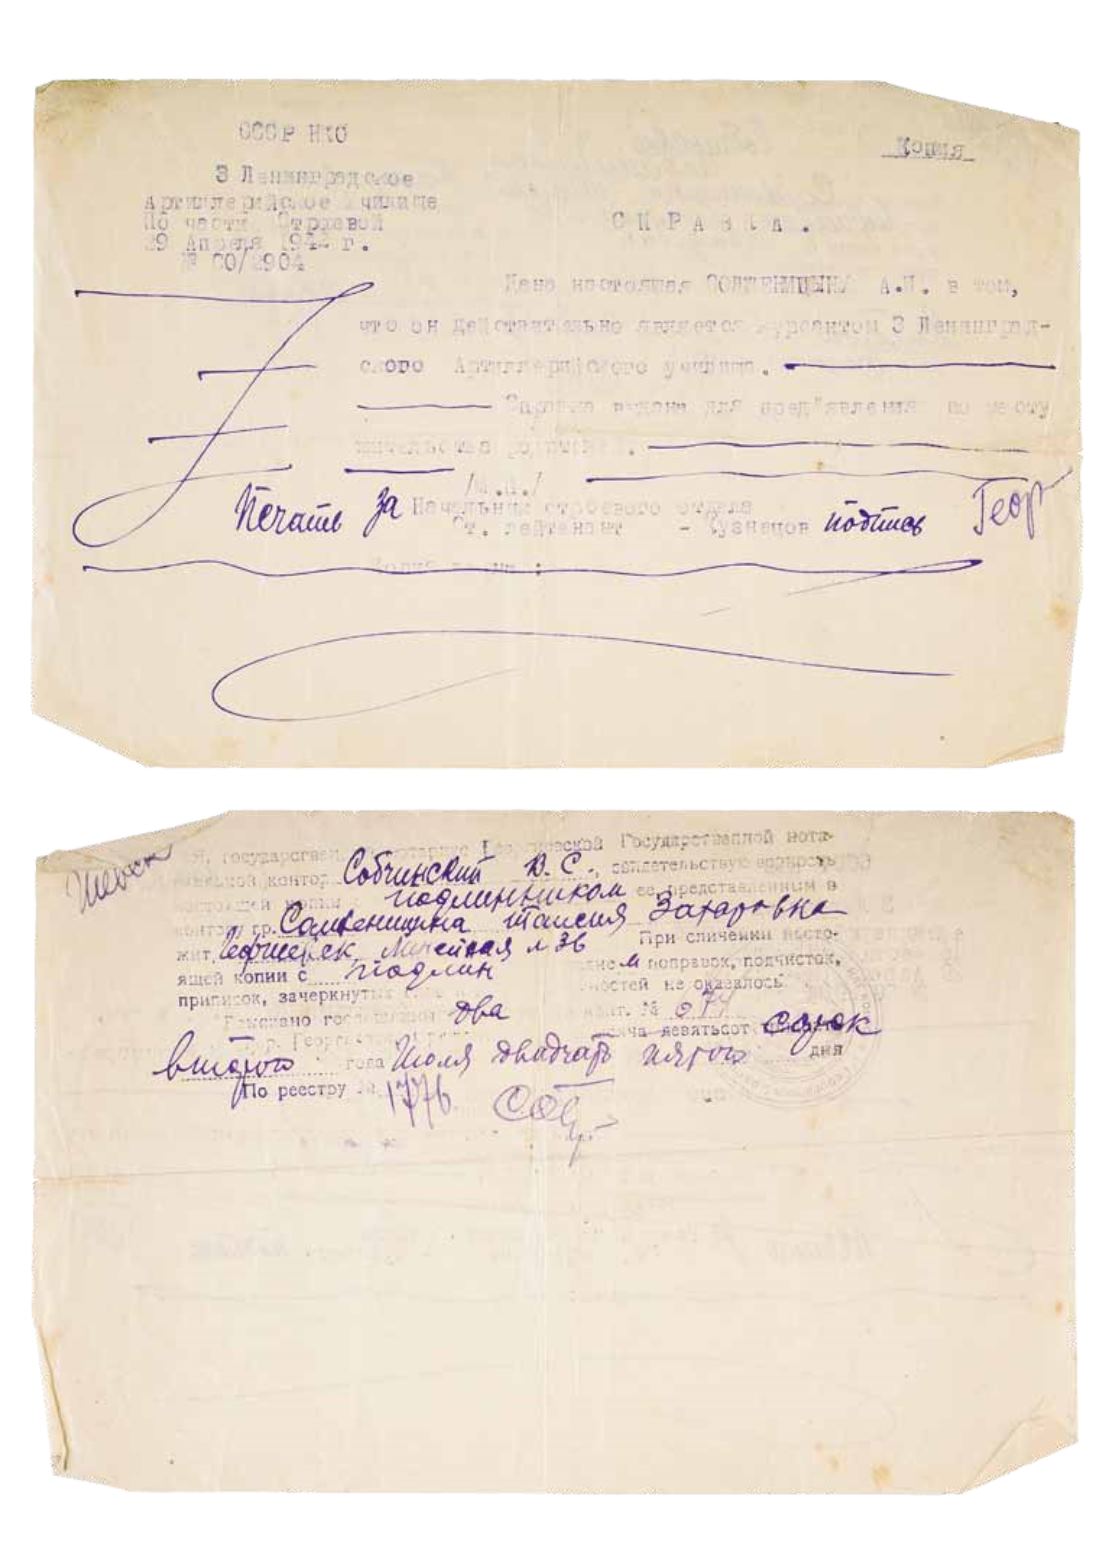 СССР НКО
Копия
3 Ленинградское
Артиллерийское Училище
По части Строевой
29 Апреля 1942 г.
№ 60/2904
СПРАВКА.
Дана настоящая СОЛЖЕНИЦЫНУ А.И. в том,
что он действительно является курсантом 3 Ленинград-
ского Артиллерийского училища.
Справка выдана для пред"явления по месту
жительства родителей.
/М.П./
Печать за Начальник строевого отдела
Ст. лейтенант - Кузнецов подпись Геор
Копия верна:
Я, государствен нотариус Государственной нота-
конторы Собчинский В. С., свидетельствую верность
настоящей копии с подлинником ее представленным в
контору гр. Солженицына Таисия Захаровка
жит. При сличении насто-
ящей копии с подлин поправок, подчисток,
приписок, зачеркнутых не оказалось.
Взыскано госпошлины два квит. № 074
тысяча девятьсот сорок
второго года Июля двадцать пятого дня
По реестру № 1776